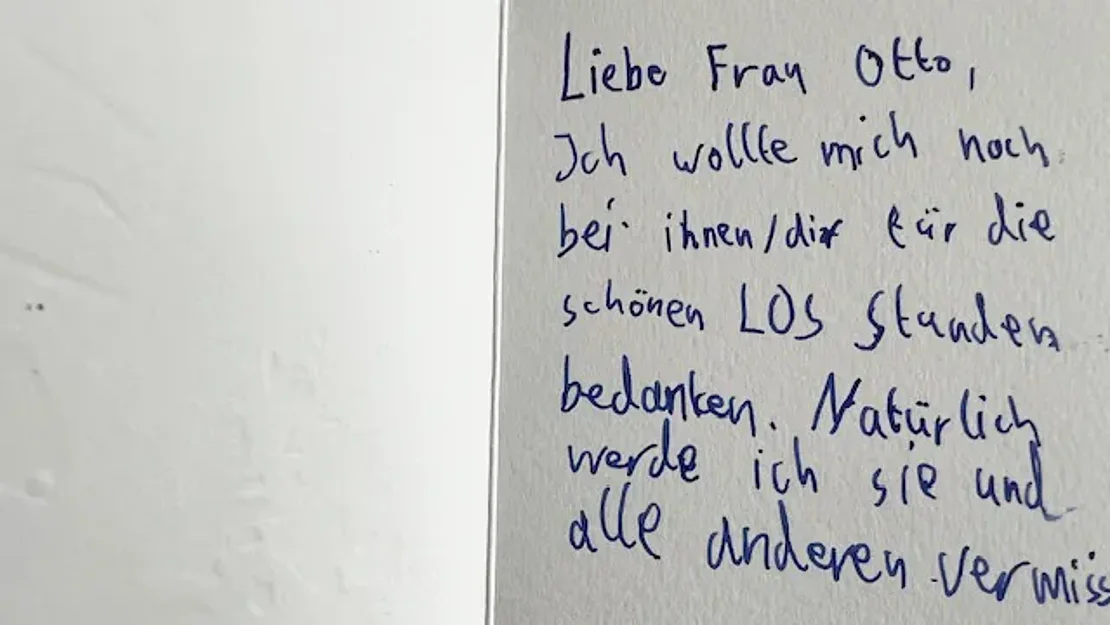 Liebe Frau Otto,
Ich wollte mich noch
bei ihnen/dir für die
schönen LOS Stunden
bedanken. Natürlich
werde ich sie und
alle anderen vermiss